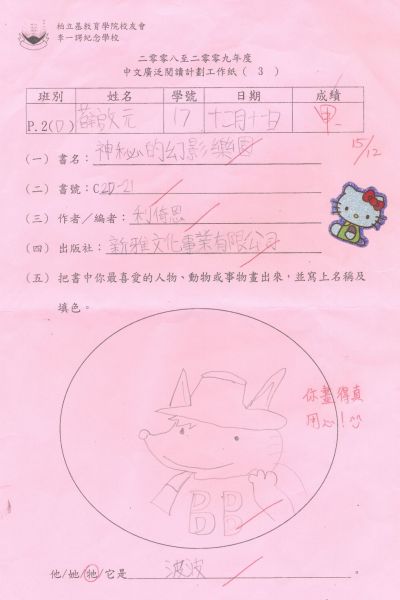 柏立基教育學院校友會
李一諤紀念學校
二零零八至二零零九年度
中文廣泛閱讀計劃工作紙(3)
班別 姓名 學號 日期 成績
P.2(D) 薛啟元 17 十二月十一日 甲-
15/12
(一) 書名:神秘的幻影樂園
(二) 書號:C2D-21
(三) 作者/編者:利倚恩
(四) 出版社:新雅文化事業有限公司
(五) 把書中你最喜愛的人物、動物或事物畫出來,並寫上名稱及
填色。
你畫得真
用心!
BB
他/她/牠/它是 波波 。